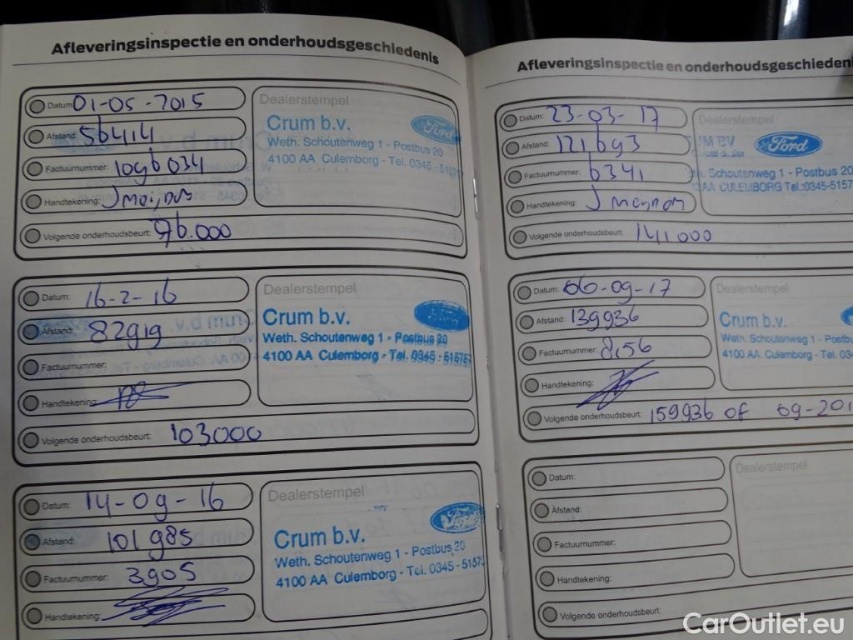 Afleveringsinspectie en onderhoudsgeschiedenis
Datum: 01-05-2015
Afstand: 56414
Factuurnummer: 1096034
Handtekening:
Volgende onderhoudsbeurt: 76.000
Dealerstempel
Ford
Crum b.v.
Weth. Schoutenweg 1 - Postbus 20
4100 AA Culemborg - Tel. 0345 - 5157
Datum: 16-2-16
Afstand: 82919
Factuurnummer:
Handtekening:
Volgende onderhoudsbeurt: 103000
Dealerstempel
Crum b.v.
Weth. Schoutenweg 1 - Postbus 20
4100 AA Culemborg - Tel. 0345 - 51575
Datum: 14-09-16
Afstand: 101985
Factuurnummer: 3905
Handtekening:
Dealerstempel
Ford
Crum b.v.
Weth. Schoutenweg 1 - Postbus 20
4100 AA Culemborg - Tel. 0345 - 5157
Afleveringsinspectie en onderhoudsgeschieden
Datum: 23-03-17
Afstand: 121693
Factuurnummer: 6341
Handtekening:
Volgende onderhoudsbeurt: 141000
Dealerstempel
UM BV
Ford
. Schoutenweg 1 - Postbus 20
AA CULEMBORG Tel.:0345-5157
Datum: 06-09-17
Afstand: 139936
Factuurnummer: 8156
Handtekening:
Volgende onderhoudsbeurt: 159936 of 09-201
Dealerstempel
Crum b.v.
Weth. Schoutenweg 1 - Postbu
4100 AA Culemborg - Tel. 03
Datum:
Afstand:
Factuurnummer:
Handtekening:
Volgende onderhoudsbeurt:
Dealerstempel
CarOutlet.eu